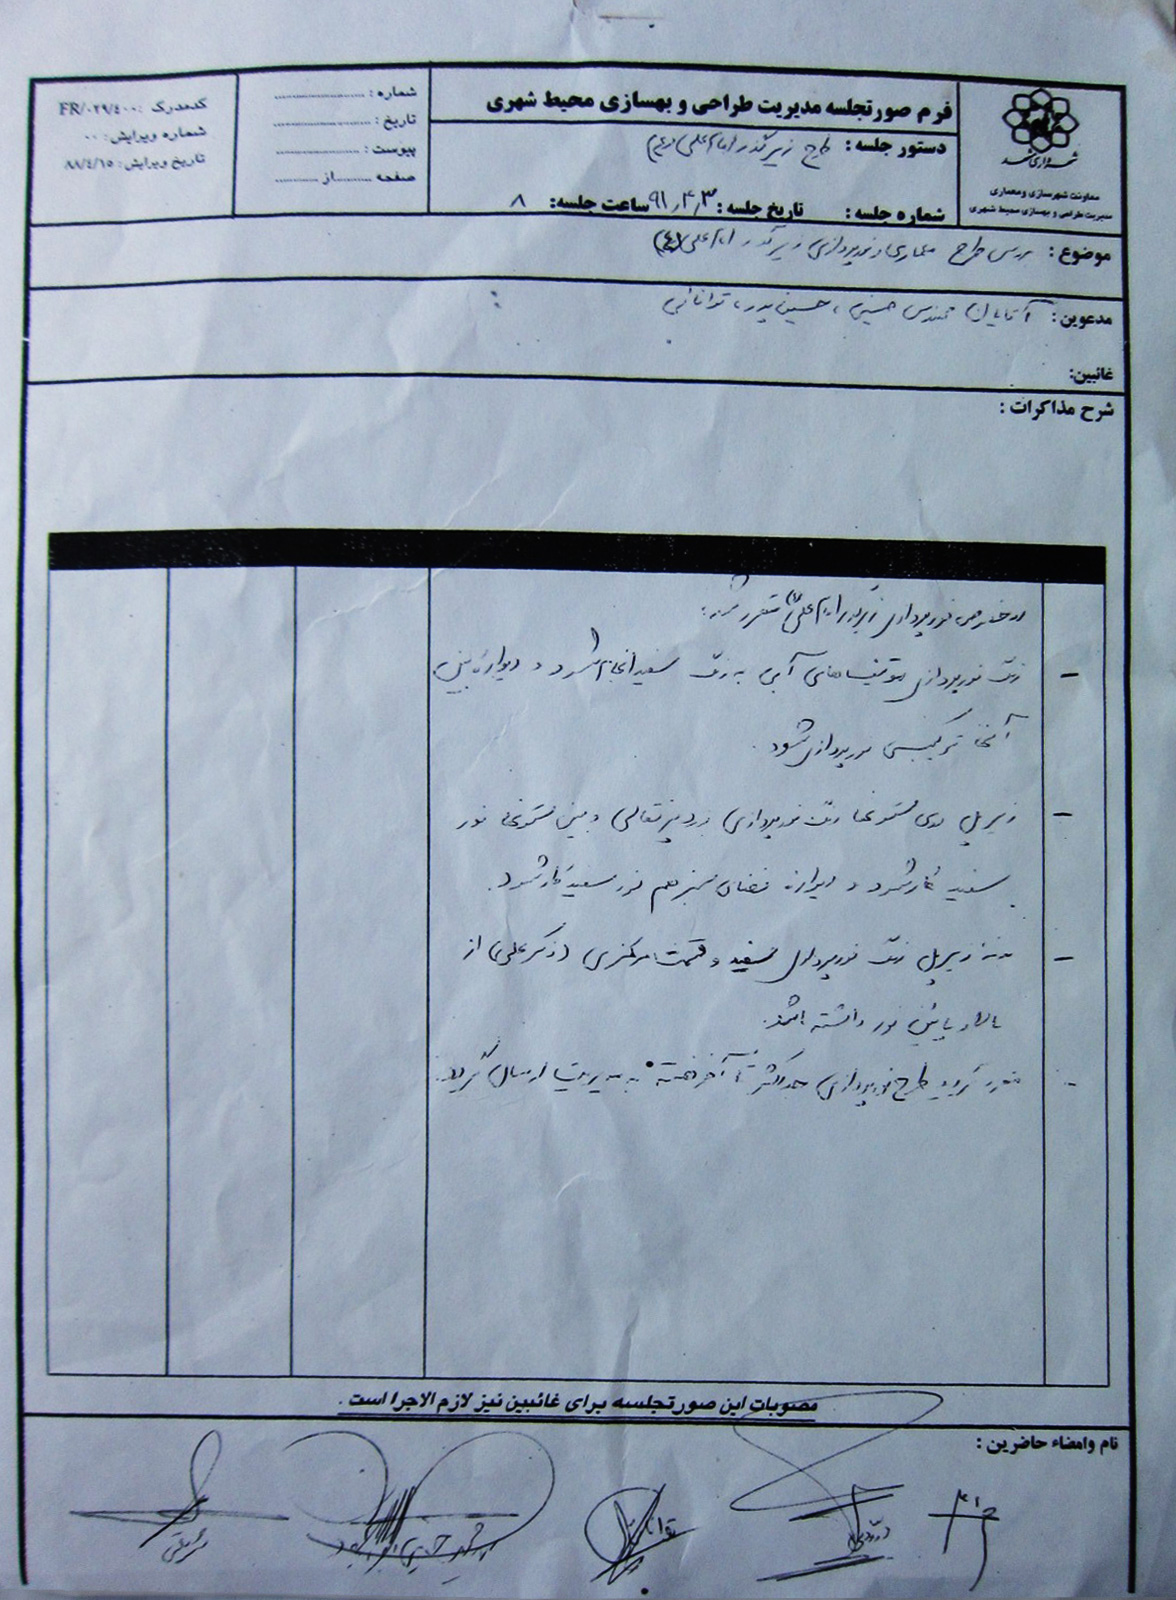 شهرداری مشهد
معاونت شهرسازی و معماری
مدیریت طراحی و بهسازی محیط شهری
فرم صورتجلسه مدیریت طراحی و بهسازی محیط شهری
دستور جلسه: طرح زیرگذر امام علی (ع)
شماره جلسه: تاریخ جلسه: ۹۱٫۴٫۳ ساعت جلسه: ۸
شماره: ....................
تاریخ: ....................
پیوست: ....................
صفحه ..........از ..........
کدمدرک: FR/۰۲۹/۴۰۰
شماره ویرایش: ۰۰
تاریخ ویرایش: ۸۸/۴/۱۵
موضوع: بررسی طرح معماری و نورپردازی زیرگذر امام علی (ع)
مدعوین: آقایان مهندس حسینی، حسین پور، توانائی
غائبین:
شرح مذاکرات:
در خصوص نورپردازی زیرگذر امام علی (ع) مقرر شد:
- رنگ نورپردازی آبی به رنگ سفید انجام شود و دیواره بین
آنها ترکیبی نورپردازی شود.
- زیر پل روی ستونها رنگ نورپردازی زرد پرتقالی و بین ستونها نور
سفید کار شود و دیواره فضای سبز هم نور سفید کار شود.
- بدنه زیر پل رنگ نورپردازی سفید و قسمت مرکزی (ذکر علی) از
بالا و پائین نور داشته باشد.
- مقرر گردید طرح نورپردازی حداکثر تا آخر هفته به مدیریت ارسال گردد.
مصوبات این صورتجلسه برای غائبین نیز لازم الاجرا است.
نام وامضاء حاضرین:
توانائی